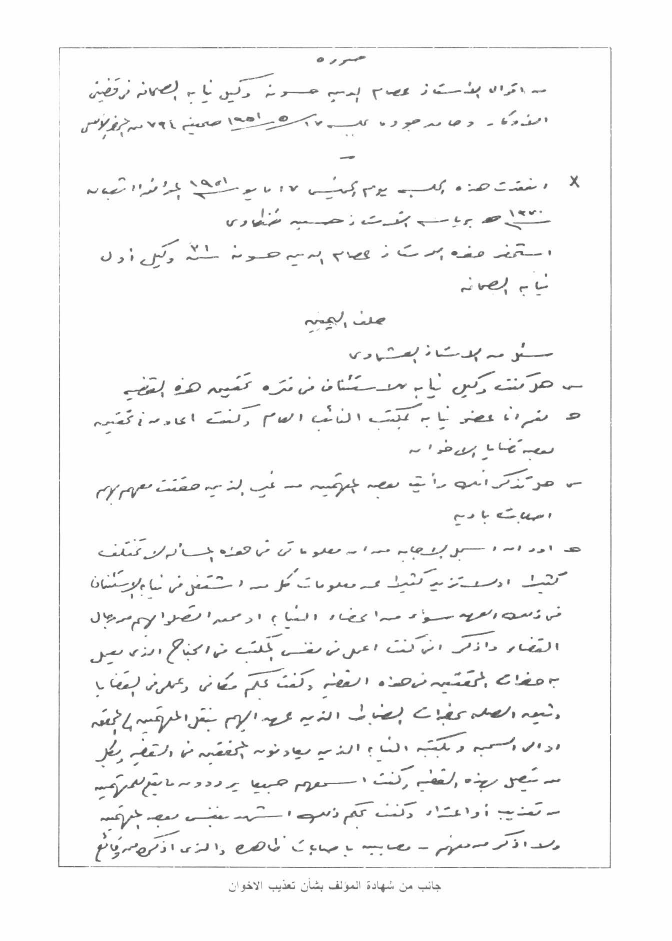 صورة
من اقوال الأستاذ عصام الدين حسونة وكيل نيابة الصحافة فى قضيتى
الأوكار وحامد جودة بجلسة ١٧/٥/١٩٥١ صحيفة ٧٩٤ من
انعقدت هذه الجلسه يوم الخميس ١٧ مايو ١٩٥١ الموافق ١١ شعبان
١٣٧٠ هـ برياسة الاستاذ حسين طنطاوى
استحضر حضرة الاستاذ عصام الدين حسونة سنه ٣١ وكيل أول
نيابة الصحافه
حلف اليمين
سئل من الاستاذ العشماوى
س هل كنت وكيل نيابه الاستئناف فى فترة تحقيق هذه القضيه
جـ مقر انا عضو نيابه بمكتب النائب العام وكنت اعاون فى تحقيق
بعض قضايا الاخوان
س هل تذكر أنك رأيت بعض المتهمين من غير الذين حققت معهم بهم
اصابات باديه
جـ اود ان اسجل لاجابه من ان معلوماتى فى هذه المسأله لا تختلف
كثيرا او لا تزيد كثيرا عن معلومات كل من اشتغل فى نيابة الاستئناف
فى ذلك العهد سواء من اعضاء النيابه او ممن اتصلوا بهم من رجال
القضاء واذكر انى كنت اعمل فى نفس المكتب فى الجناح الذى يعمل
به حضرات المحققين فى هذه القضيه وكنت بحكم مكانى وعملى فى القضايا
وثيق الصله بحضرات الضباط الذين عهد اليهم بنقل المتهمين الى المحقق
او الى السجن وبكتبة النيابه الذين يعاونون المحققين فى القضيه وبكل
من يتصل بهذه القضيه وكنت اسمعهم جميعا يرددون ما يقع للمتهمين
من تعذيب أو اعتداء وكنت بحكم ذلك اشهد بنفسى بعض المتهمين
ولا اذكر من منهم – مصابين باصابات ظاهرة والذى اذكره من وقائع
جانب من شهادة المؤلف بشأن تعذيب الاخوان